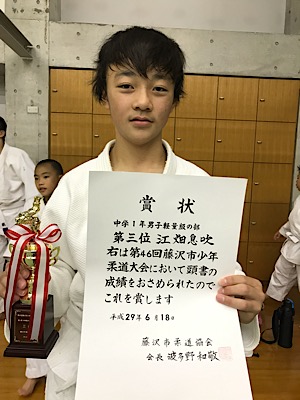 賞状
中学1年男子軽量級の部
第三位 江畑息吹
右は第46回藤沢市少年
柔道大会において頭書の
成績をおさめられたので
これを賞します
平成29年6月18日
藤沢市柔道協会
会長 波多野和敬